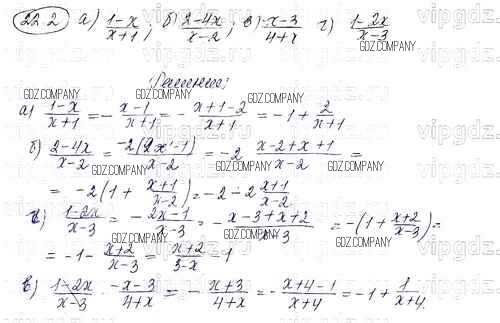 22.2 а) (1-x)/(x+1); б) (2-4x)/(x-2); в) (-x-3)/(4+x) г) (1-2x)/(x-3)
Решение:
а) (1-x)/(x+1) = -(x-1)/(x+1) = -(x+1-2)/(x+1) = -1+2/(x+1)
б) (2-4x)/(x-2) = -2(2x-1)/(x-2) = -2 (x-2+x+1)/(x-2) =
= -2(1+(x+1)/(x-2)) = -2-2(x+1)/(x-2)
(1-2x)/(x-3) = -(2x-1)/(x-3) = -(x-3+x+2)/(x-3) = -(1+(x+2)/(x-3)) =
= -1-(x+2)/(x-3) = (x+2)/(3-x) -1
в) (1-2x)/(x-3) · (-x-3)/(4+x) = -(x+3)/(4+x) = -(x+4-1)/(x+4) = -1+1/(x+4).